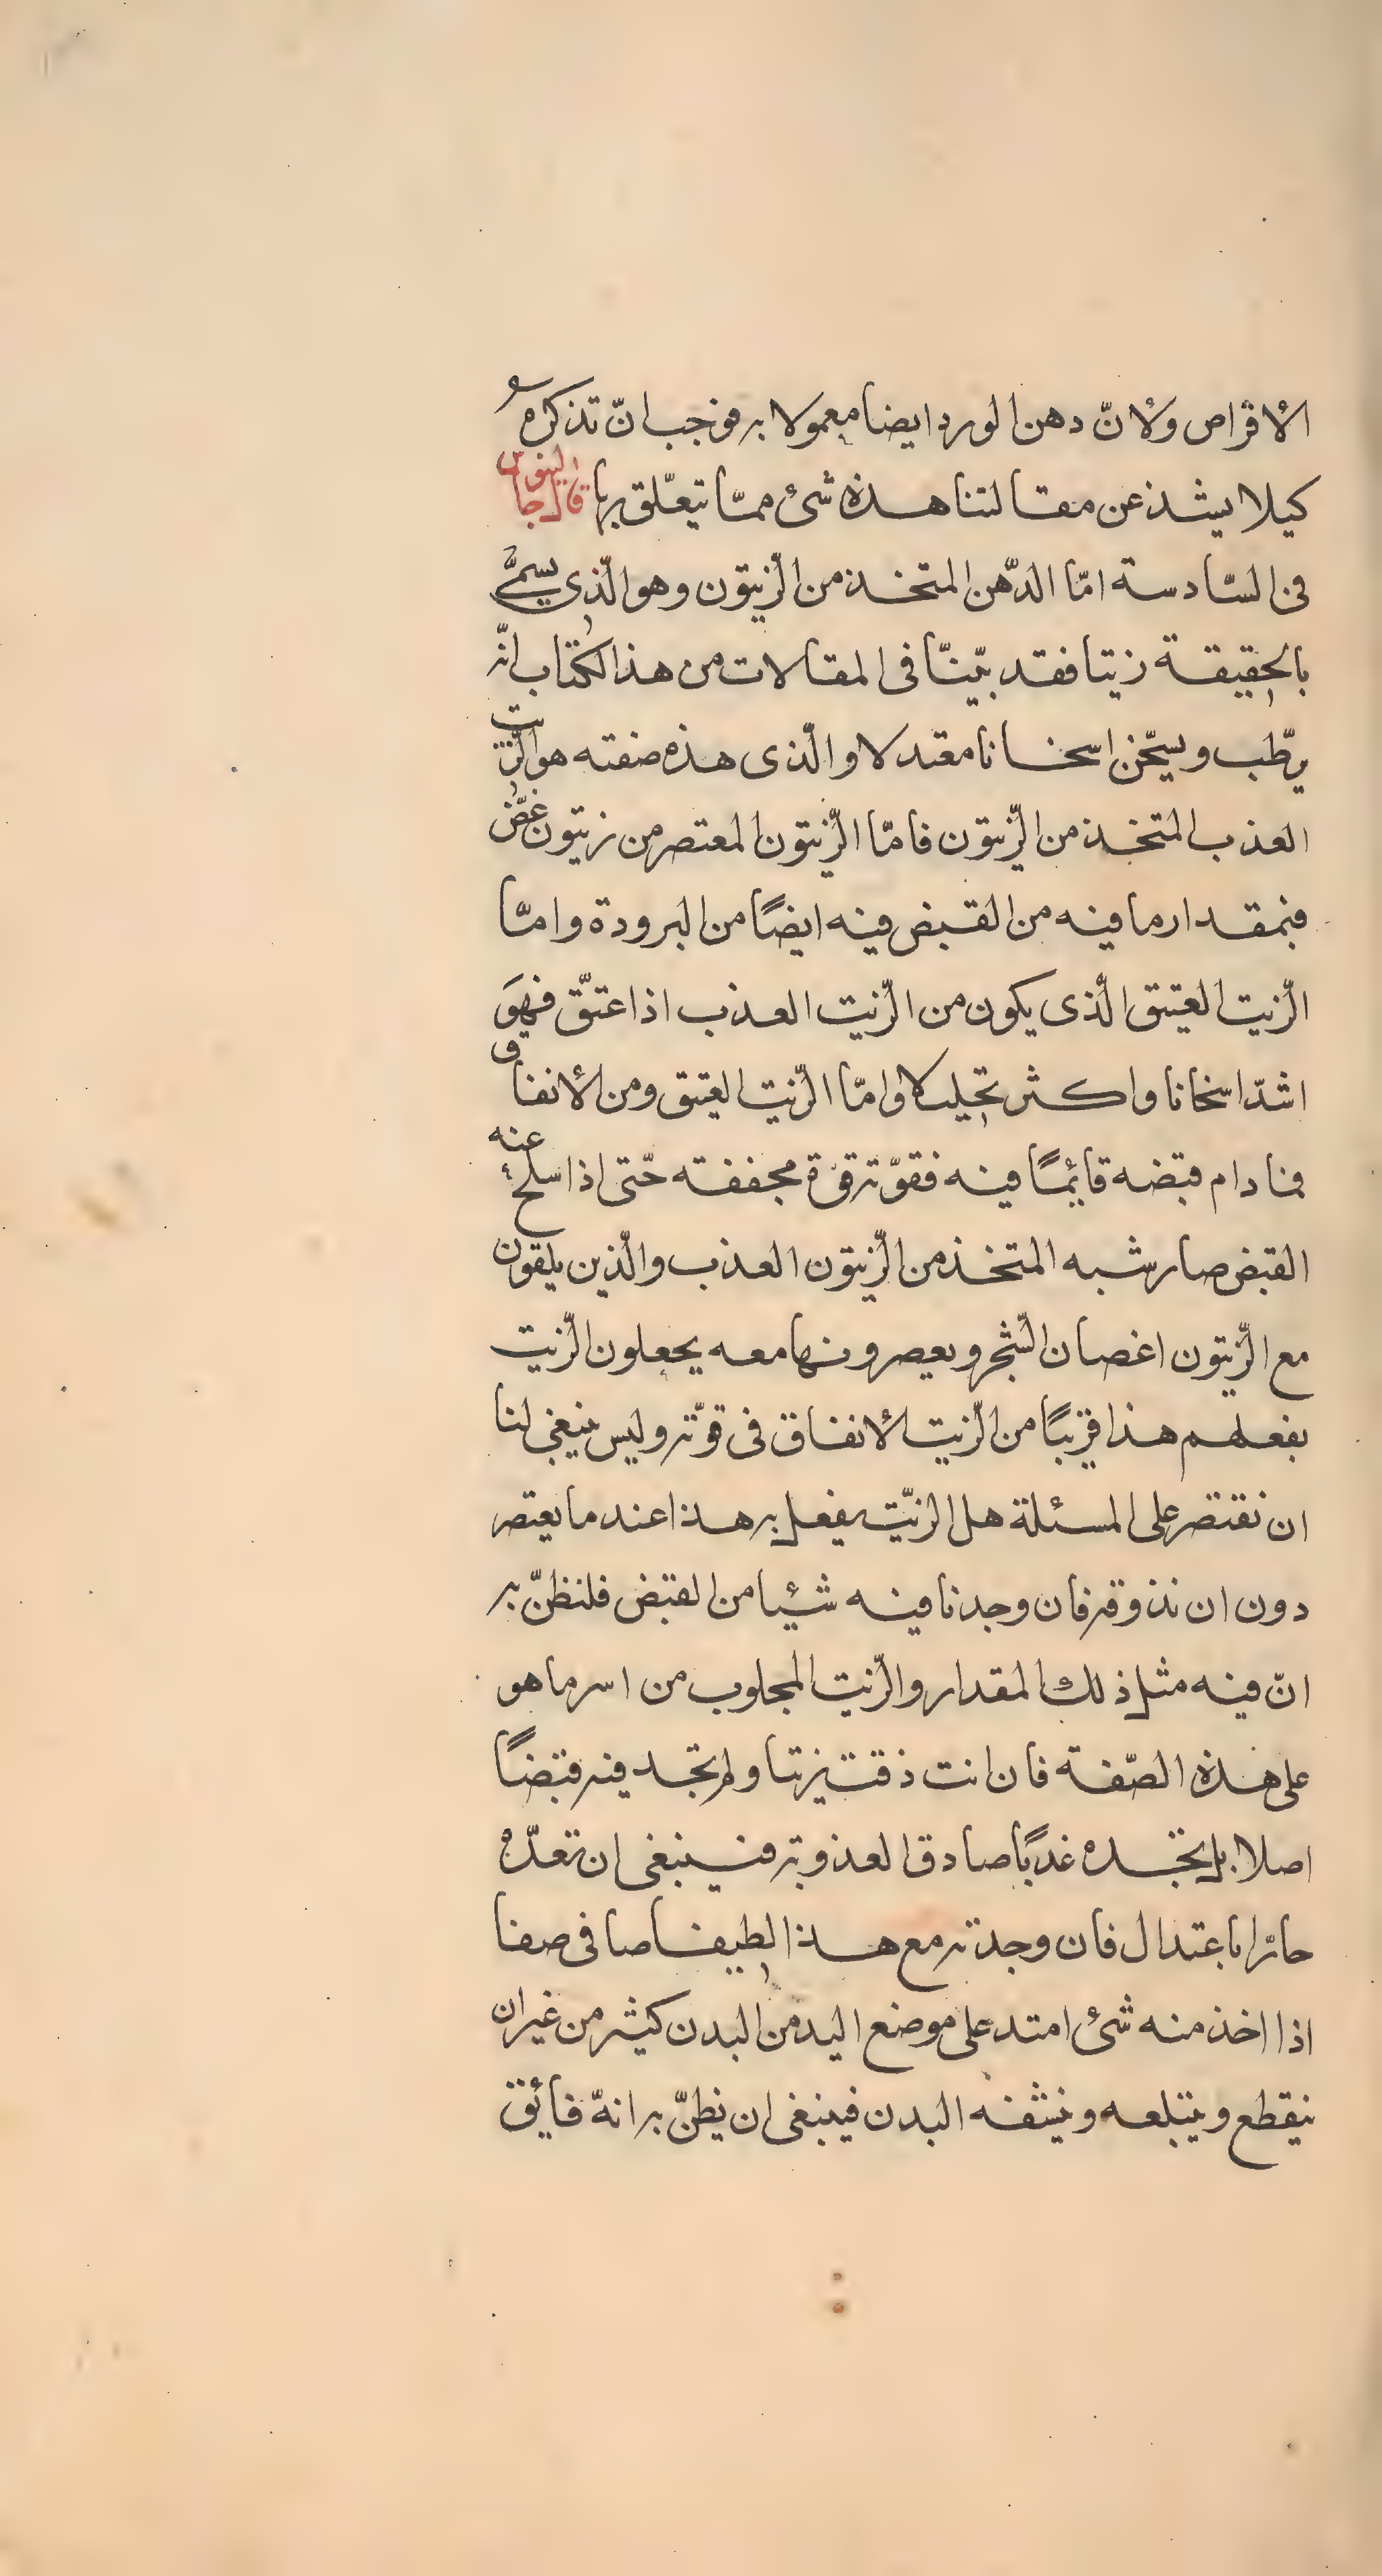 الأقراص ولأنّ دهن الورد ايضا معمولا به فوجب انّ تذكره
كيلا يشذ عن مقالتنا هذه شئ ممّا يتعلّق بها قال جالينوس
فى السّادسة امّا الدّهن المتخذ من الزّيتون وهو الّذى يسمّى
بالحقيقة زيتا فقد بيّنّا فى المقالات من هذا الكتاب انّه
يرّطب ويسخّن اسخانا معتدلا والّذى هذه صفته هو الزّيت
العذب المتخذ من الزّيتون فامّا الزّيتون المعتصر من زيتون غضّ
فبمقدار ما فيه من القبض فيه ايضًا من البرودة وامّا
الزّيت العتيق الّذى يكون من الزّيت العذب اذا عتّق فهوَ
اشدّ اسخانا واكثر تحليلا وامّا الزّيت العتيق ومن الأنفاق
فما دام قبضه قائمًا فيه فقوّته قوّة مجففته حتّى اذا اسلخ عنه
القبض صار شبه المتخذ من الزّيتون العذب والّذين يلقون
مع الزّيتون اغصان الشّجر ويعصرونها معه يجعلون الزّيت
بفعلهم هذا قريبًا من الزّيت الأنفاق فى قوّته وليس ينبغى لنا
ان نقتصر على المسئلة هل الزيّت يفعل به هذا عند ما يعتصر
دون ان نذوقه فان وجدنا فيه شئيا من القبض فلنظنّ به
انّ فيه مثل ذلك المقدار والزّيت المجلوب من اسرما هو
على هذه الصّفة فان انت ذقت زيتا ولم تجد فيه قبضًا
اصلا بل تجده عذبًا صادق العذوبة فينبغى ان تعدّه
حارّا باعتدال فان وجدته مع هذا لطيفا صافى صفا
اذا اخذ منه شئ امتد على موضع اليد من البدن كثير من غير ان
ينقطع ويتبلعه وينشفه البدن فينبغى ان يظنّ به انهّ فائق